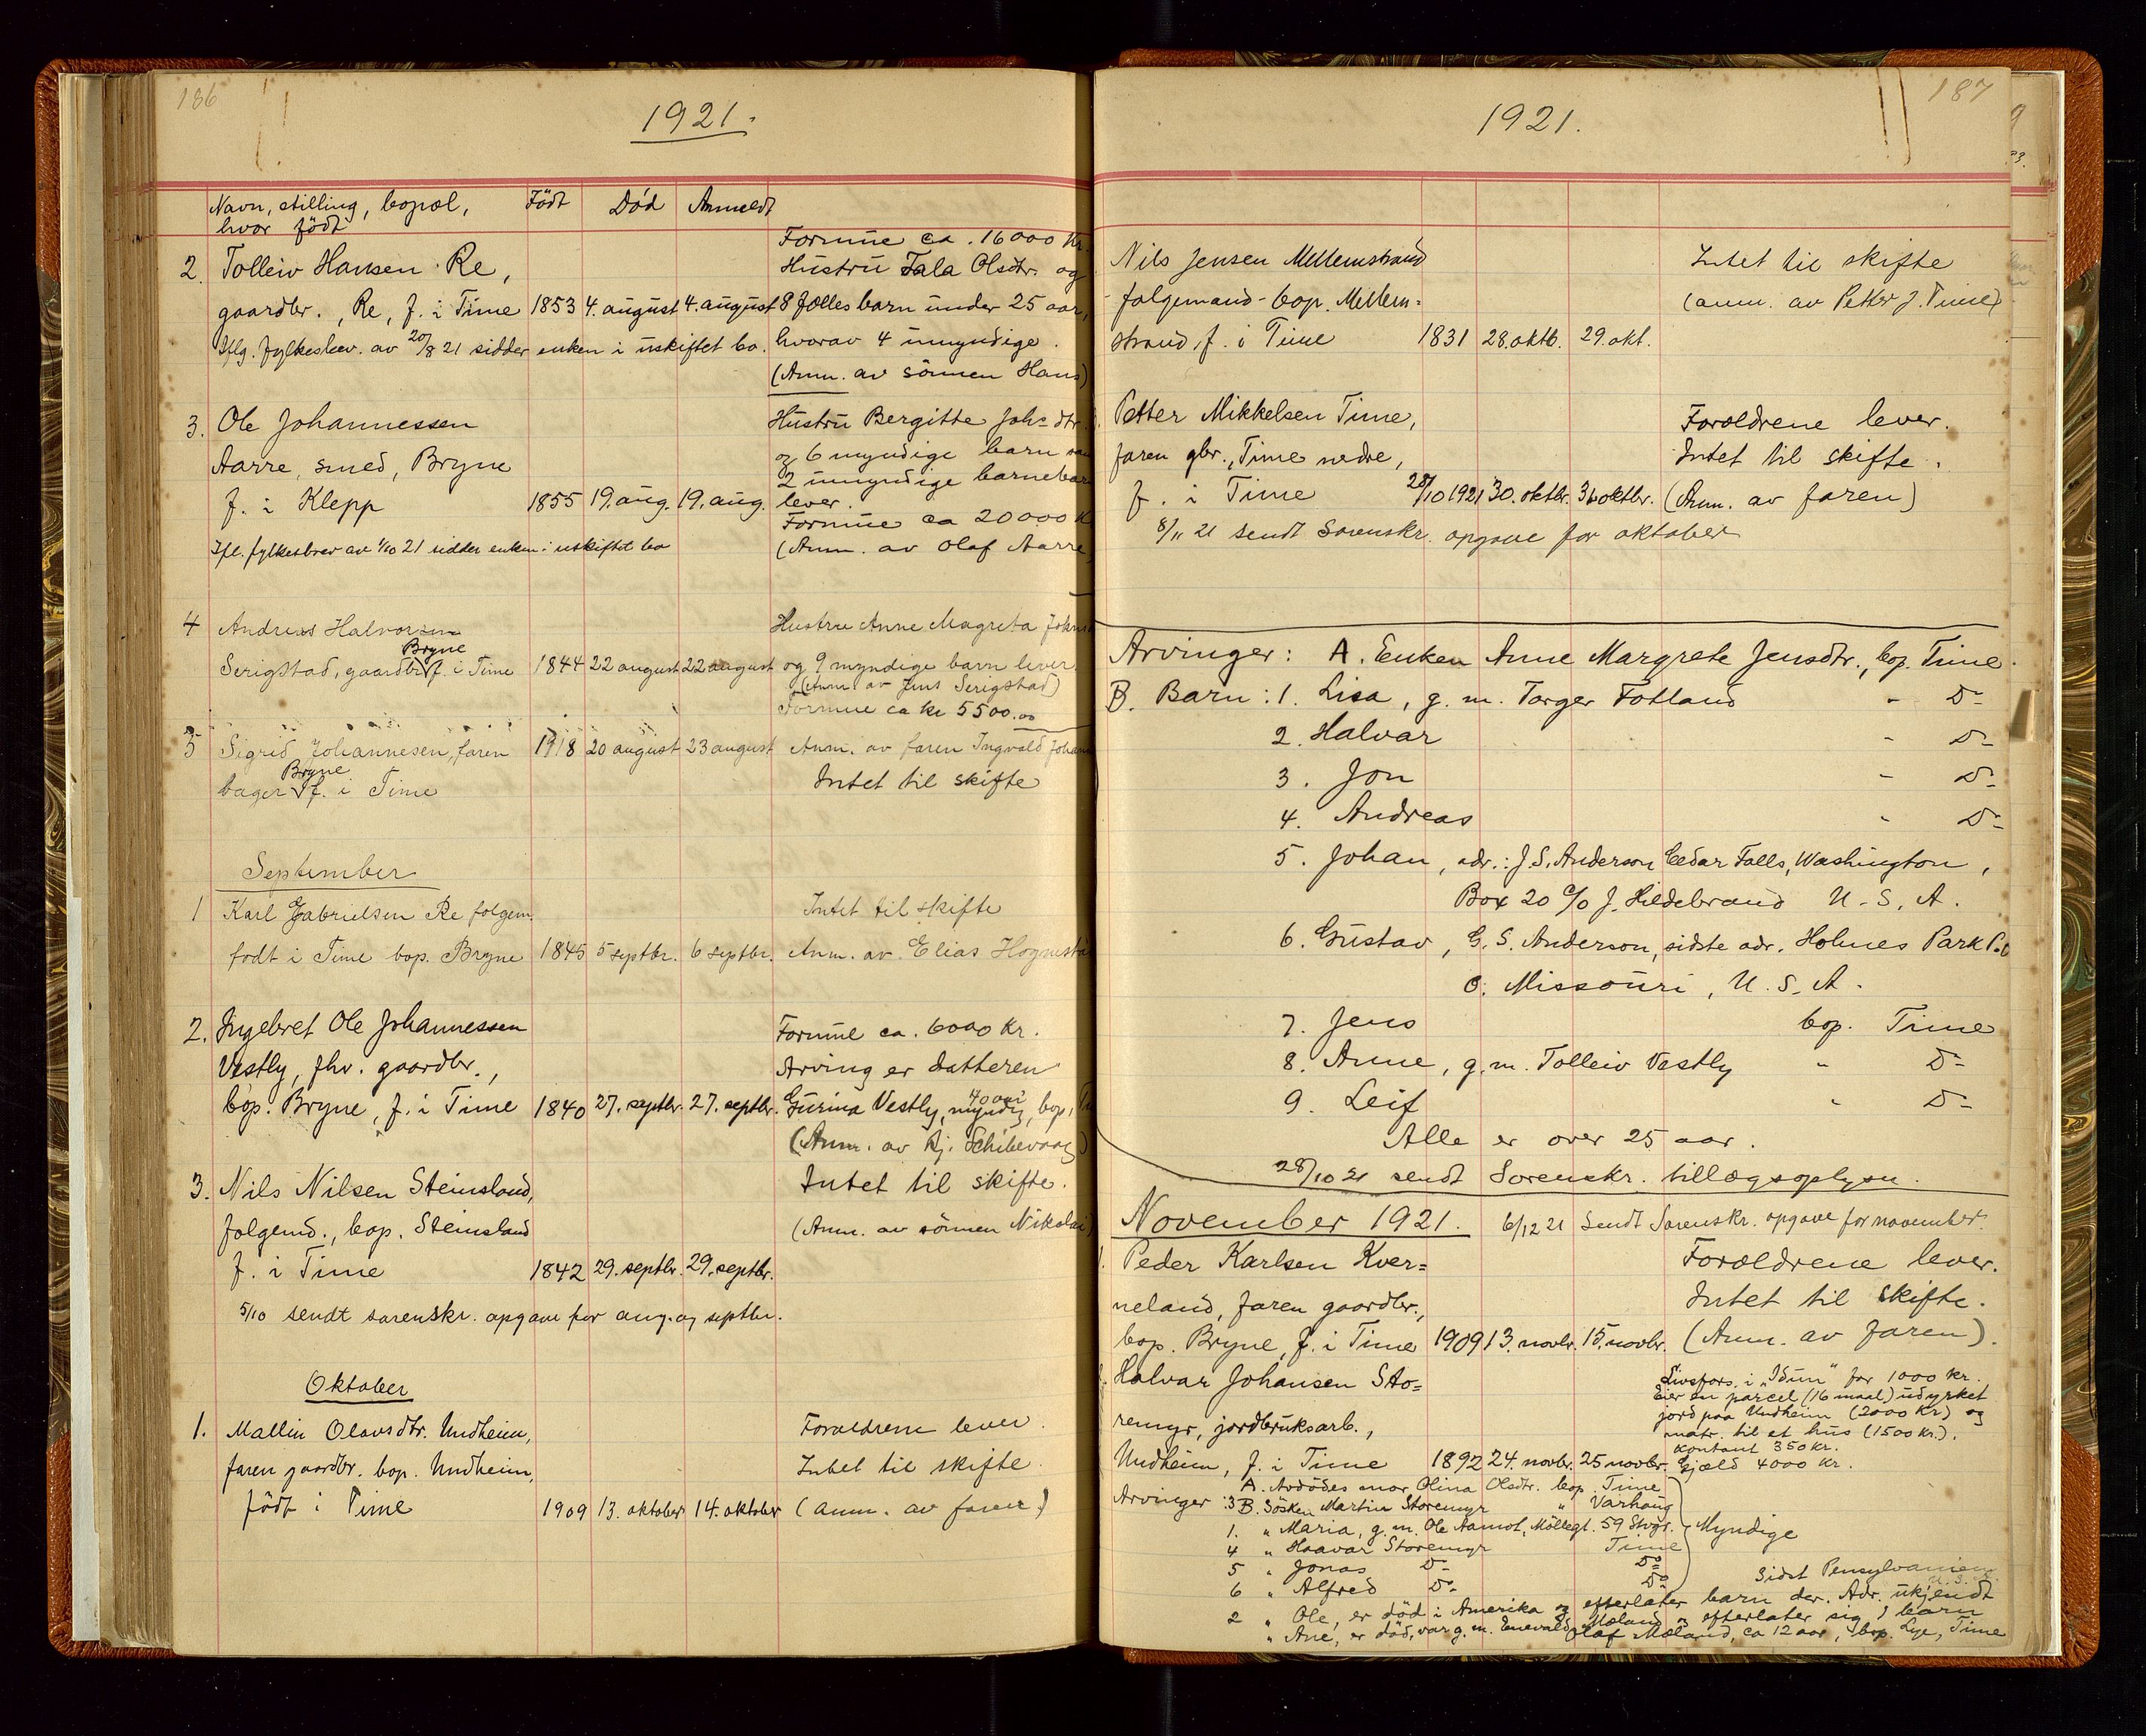 186
1921.
Navn, stilling, bopæl,
hvor født
Født
Död
Anmeldt
2. Tolleiv Hansen Re,
gaardbr., Re, f. i Time 1853 4. august 4. august
Iflg. fylkesbrev. av 20/8 21 sidder enken i uskiftet bo.
Formue ca. 16000 Kr.
Hustru Tala Olsdtr. og
8 fælles barn under 25 aar,
hvorav 4 umyndige.
(Anm. av sönnen Hans)
3. Ole Johannessen
Aarre, smed, Bryne
f. i Klepp 1855 19. aug. 19. aug.
Ifl. fylkesbrev av 1/10 21 sidder enken i uskiftet bo
Hustru Bergitte Joh= dtr.
og 6 myndige barn
2 umyndige barnebar
lever.
Formue ca 20000 K
(Anm. av Olaf Aarre
4 Andreas Halvorsen
Bryne
Serigstad, gaardbr f. i Time 1844 22 august 22 august
Hustru Anne Magreta
og 9 myndige barn lever
(Anm av Jens Serigstad)
Formue ca kr 5500.00
5 Sigrid Johannesen, faren 1918 20 august 23 august
Bryne
bager f. i Time
Anm. av faren Ingvald Johan
Intet til skifte
September
1 Karl Gabrielsen Re folgem.
fodt i Time bop. Bryne 1845 5 septbr. 6 septbr.
Intet til skifte
Anm. av Elias Hognesta
2. Ingebret Ole Johannessen
Vestly, fhv. gaardbr.,
bop. Bryne, f. i Time 1840 27. septbr. 27. septbr.
Formue ca. 6000 Kr.
Arving er datteren
40 aar
Gurina Vestly, myndig, bop. Ti
(Anm. av Kj. Schibevaag)
3. Nils Nilsen Steinsland,
folgemd., bop. Steinsland
f. i Time 1842 29. septbr. 29. septbr.
Intet til skifte.
(Anm. av sönnen Nikolai)
5/10 sendt sorenskr. opgave for aug. og septbr.
Oktober
1. Mallin Olavsdtr. Undheim,
faren gaardbr. bop. Undheim,
födt i Time 1909 13. oktober 14. oktober
Forældrene lever.
Intet til skifte.
(anm. av faren)
187
1921.
Nils Jensen Mellemstrand
folgemand - bop. Mellem=
strand, f. i Time 1831 28. oktb. 29. okt.
Intet til skifte
(anm. av Petter J. Time)
Petter Mikkelsen Time,
faren gbr., Time nedre,
f. i Time 28/10 1921 30. oktbr. 31 oktbr.
Forældrene lever.
Intet til skifte.
(Anm. av faren)
8/11 21 sendt Sorenskr. opgave for oktober
Arvinger: A. Enken Anne Margrete Jensdtr., bop. Time.
B. Barn: 1. Lisa, g. m. Torger Fotland - Do
2. Halvar - Do
3. Jon - Do
4. Andreas - Do
5. Johan, adr.: J. S. Anderson Cedar Falls, Washington,
Box 20 c/o J. Hildebrand U. S. A.
6. Gustav, G. S. Anderson, sidste adr. Holmes Park P.O
o. Missouri, U. S. A.
7. Jens bop. Time
8. Anne, g. m. Tolleiv Vestly " Do
9. Leif " Do
Alle er over 25 aar.
28/10 21 sendt Sorenskr. tillægsoplysn.
November 1921. 6/12 21 Sendt Sorenskr. opgave for november.
1. Peder Karlsen Kver=
neland, faren gaardbr.,
bop. Bryne, f. i Time 1909 13. novbr. 15. novbr.
Forældrene lever.
Intet til skifte.
(Anm. av faren).
Halvar Johansen Sto=
remyr, jordbruksarb.,
Undheim, f. i Time 1892 24. novbr. 25 novbr.
Livsfors. i "Idun" for 1000 kr.
Eier en parcel (16 maal) udyrket
jord paa Undheim (2000 Kr) og
matr. til et hus (1500 Kr.).
kontant 350 kr.
Gjæld 4000 Kr.
A. Avdödes mor Olina Olsdtr. bop. Time
Arvinger: 3 B. Sösken Martin Storemyr " Varhaug
1. " Maria, g. m. Ole Aamot, Möllegt. 59 Stvgr.
Myndige
4 " Haavar Storemyr Time
5 " Jonas Do Do
6 " Alfred Do Do
Sidst Pensylvanien
U. S. A.
2 " Ole, er död i Amerika og efterlater barn der. Adr. ukjendt
" Ane, er död, var g. m. Enevald Mæland og efterlater sig 1 barn
Olaf Mæland, ca 12 aar, bop. Lye, Time